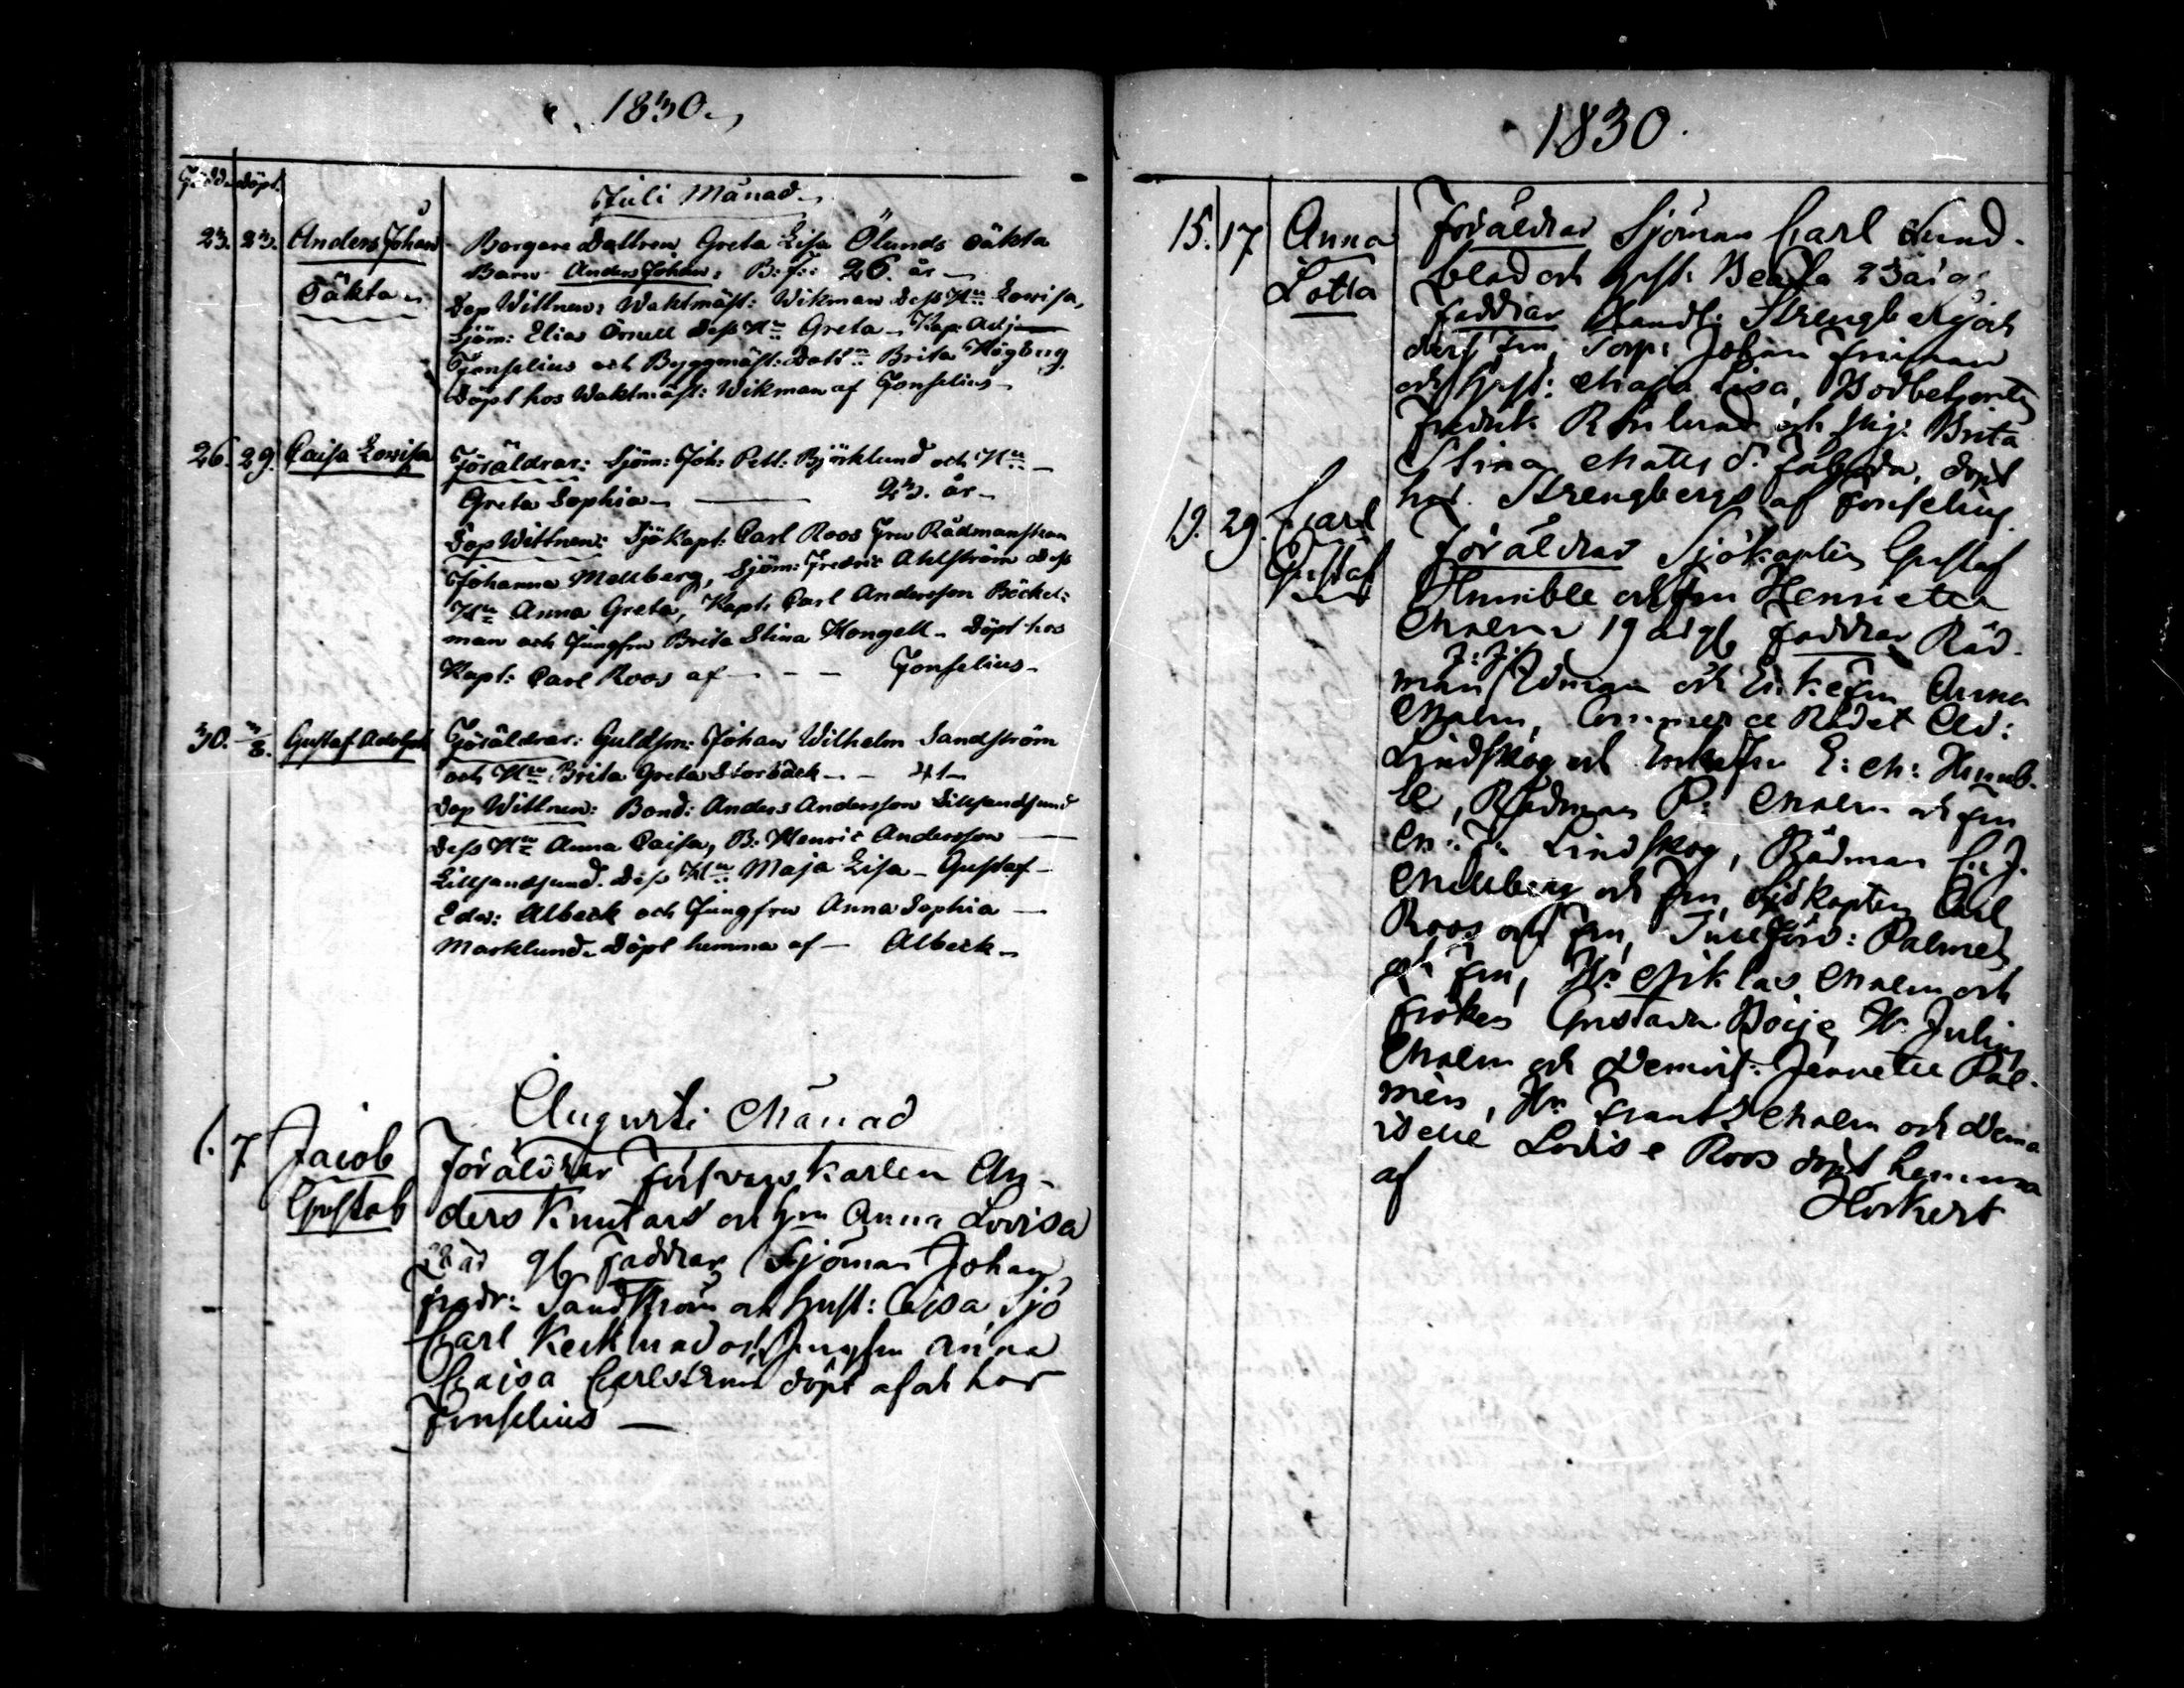 1830.
Född. Döpt.
Juli Månad.
23. 23. Anders Johan
Oäkta
Borgare Dottren Greta Lisa Ölunds oäkta
Barn Anders Johan; B: f:: 26. år
Dop Wittnen: Waktmäst: Wikman Dess Hu Lovisa,
Sjöm: Elias Dess Hu Greta - Kap: Adj:
Fonselius och Byggmäst: Dottn Brita Högberg.
Döpt hos Waktmäst: Wikman af Fonselius
26. 29. Caisa Lovisa
Föräldrar: Sjöm: Joh: Pett: Björklund och Hu
Greta Sophia 23. år
Dop Wittnen: Sjö Kapt: Carl Roos Fru Rådmanskan
Johanna Mellberg, Sjöm: Fredric Ahlström Dess
Hu Anna Greta, Kapt: Carl Andersson Böckel:
man och Jungfru Brita Stina Kongell - Döpt hos
Kapt: Carl Roos af - - - Fonselius
30. 3/8. Gustaf Adolph
Föräldrar: Guldsm: Johan Wilhelm Sandström
och Hu Brita Greta Storbäck - - 41
Dop Wittnen: Bond: Anders Andersson Lillsandsund
Dess Hu Anna Caisa, B: Henric Andersson
Lillsandsund. Dess Hu Maja Lisa - Gustaf
Edv: Albeck och Jungfru Anna Sophia
Marklund. Döpt hemma af - Albeck
Augusti Månad
1. 7 Jacob
Gustaf
Föräldrar Försvarskarlen An-
ders Knutars och Hu Anna Lovisa
28 år gl Faddrar Sjöman Johan
Fredr: Sandström och Hust: Cajsa, Sjö
Carl Kecklund och Jungfru Anna
Cajsa Carlström döpt af och hos
Fonselius
1830.
15. 17 Anna
Lotta
Föräldrar Sjöman Carl Sund-
blad och Hust: Beata 23 år g:
Faddrar Handl: Strengberg och
dess fru, Torp: Johan Friman
och Hust: Maja Lisa, Bodbetjenten
Fredrik Rönlund och Pig: Brita
Stina Mattsd: döpt
hos Strengbergs af Fonselius.
19. 29. Carl
Gustaf
Föräldrar Sjökapten Gustaf
Humble och fru Henrietta
Malm 19 år gl Faddrar Råd-
J: J:
man Edman och Enkefru Anna
Malm, Commerce Rådet And:
Lindskog och Enkefru E: M: Humb-
le, Rådman P: Malm och fru
M: F: Lindskog, Rådman C: J.
Mellberg och Fru, Sjökapten Carl
Roos och Fru, Tullförv: Palmén
och fru, Hr Niklas Malm och
Fröken Gustava Boije, Hr Julius
Malm och Demois: Jeanette Pal-
mén, Hr Frants Malm och Dema
iselle Lovise Roos döpt hemma
af
Horkert